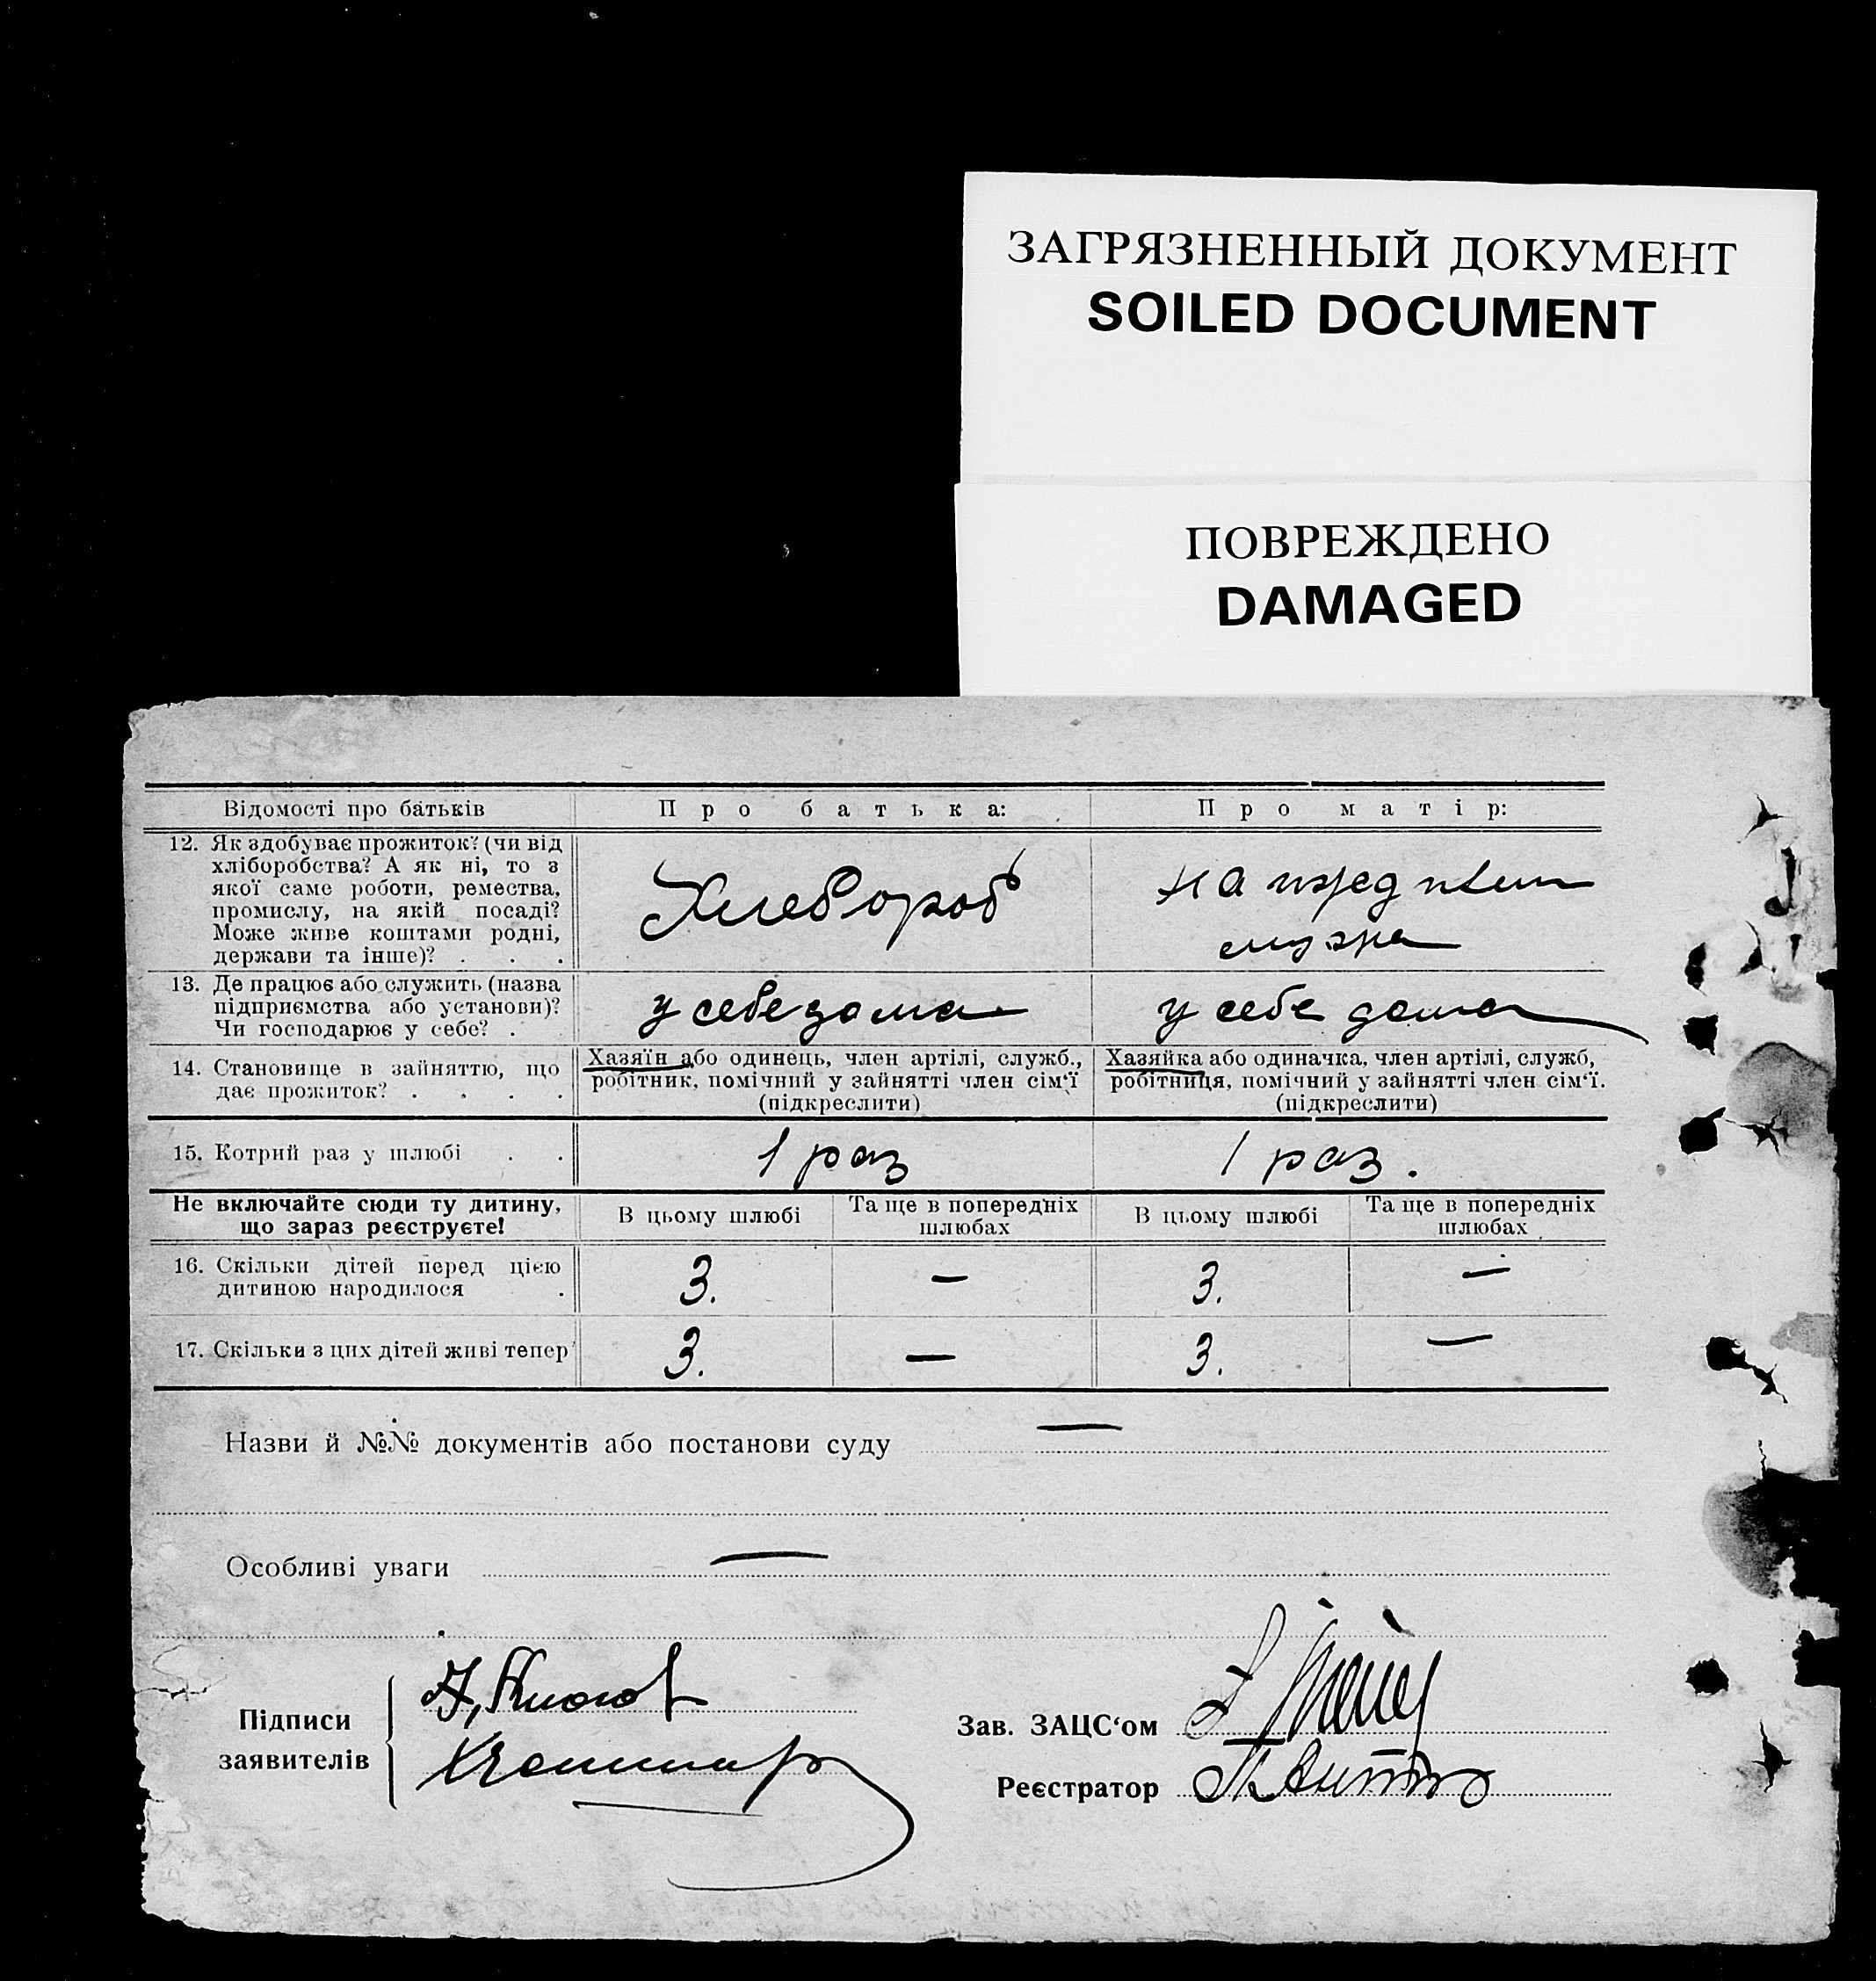 ЗАГРЯЗНЕННЫЙ ДОКУМЕНТ
SOILED DOCUMENT
ПОВРЕЖДЕНО
DAMAGED
Відомості про батьків
Про батька:
Про матір:
12. Як здобуває прожиток? (чи від
хліборобства? А як ні, то з
якої саме роботи, ремества,
промислу, на якій посаді?
Може живе коштами родні,
держави та інше)? . . .
Хлебороб
на иждивении
мужа
13. Де працює або служить (назва
підприємства або установи)?
Чи господарює у себе? .
у себе дома
у себе дома
14. Становище в зайняттю, що
дає прожиток? . . . .
Хазяїн або одинець, член артілі, служб.,
робітник, помічний у зайнятті член сім'ї
(підкреслити)
Хазяйка або одиначка, член артілі, служб,
робітниця, помічний у зайнятті член сім'ї.
(підкреслити)
15. Котрий раз у шлюбі . .
1 раз
1 раз.
Не включайте сюди ту дитину,
що зараз реєструєте!
В цьому шлюбі
Та ще в попередніх
шлюбах
В цьому шлюбі
Та ще в попередніх
шлюбах
16. Скільки дітей перед цією
дитиною народилося .
3.
—
3.
—
17. Скільки з цих дітей живі тепер
3.
—
3.
—
Назви й №№ документів або постанови суду —
Особливі уваги —
Підписи
заявителів
Зав. ЗАЦС‘ом
Реєстратор